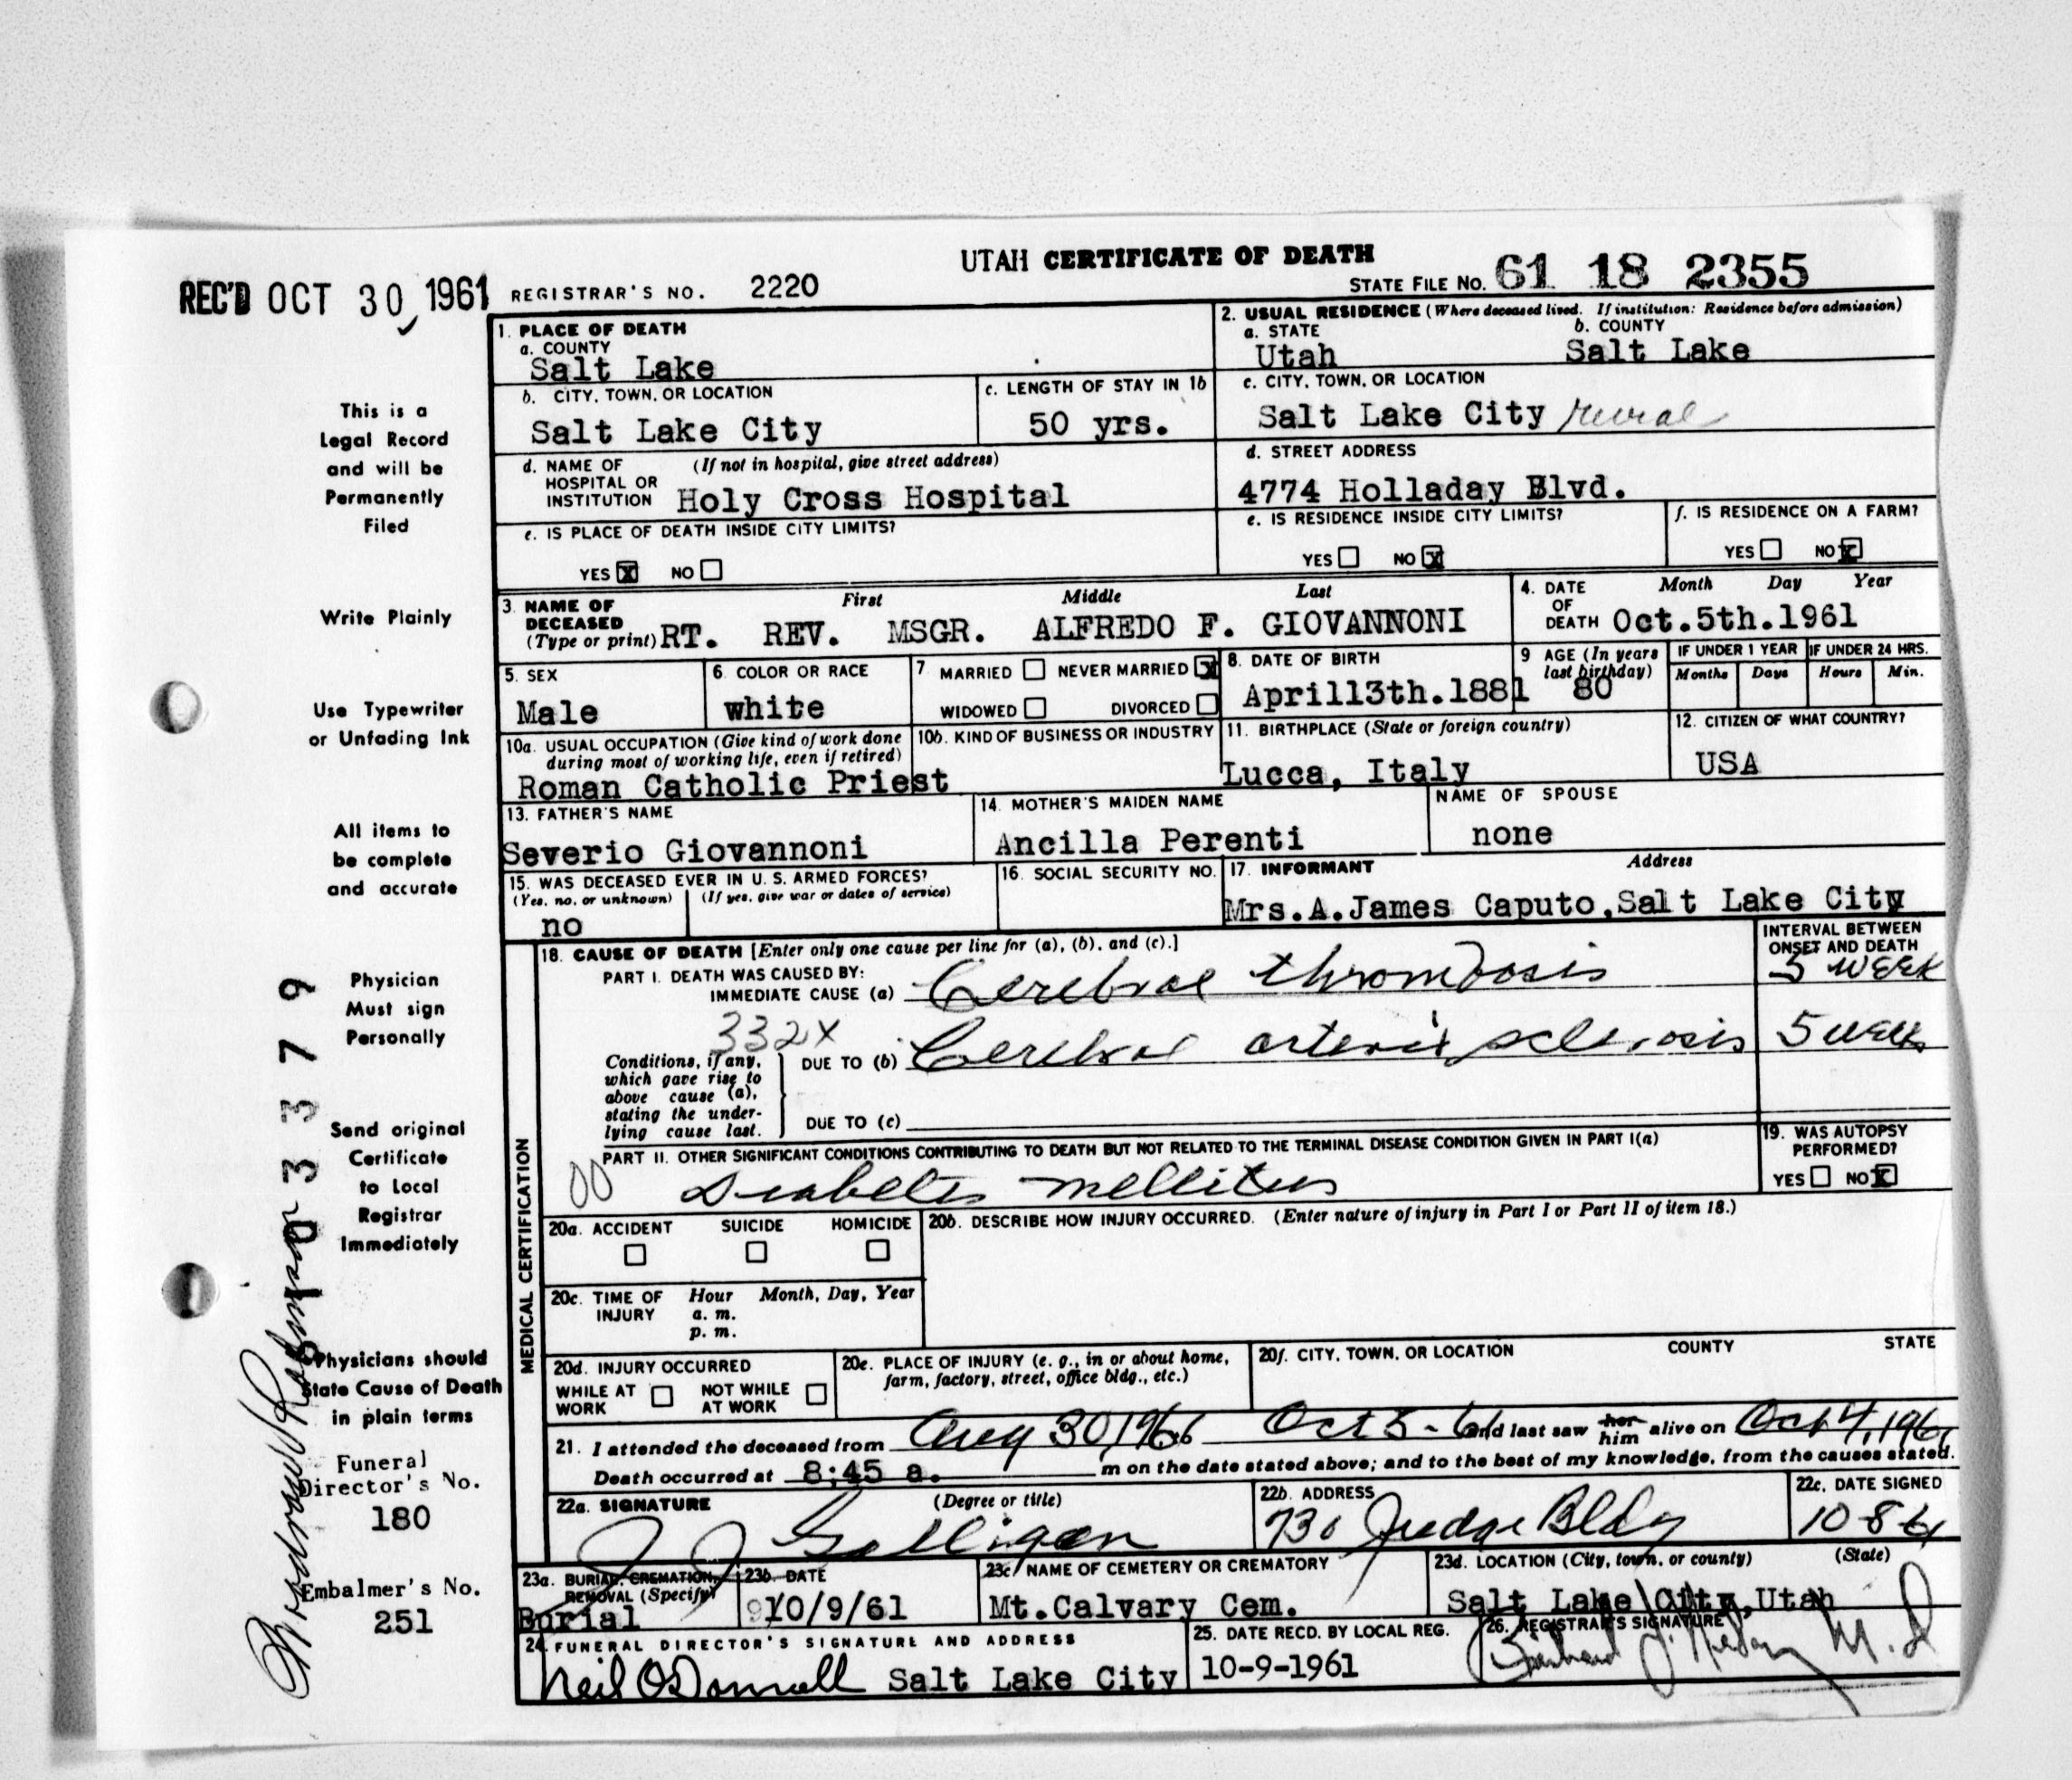 UTAH CERTIFICATE OF DEATH
REC'D OCT 30 1961 REGISTRAR'S NO. 2220 STATE FILE NO. 61 18 2355
This is a
Legal Record
and will be
Permanently
Filed
Write Plainly
Use Typewriter
or Unfading Ink
All items to
be complete
and accurate
Physician
Must sign
Personally
Send original
Certificate
to Local
Registrar
Immediately
Physicians should
State Cause of Death
in plain terms
Funeral
Director's No.
180
Embalmer's No.
251
3379
1. PLACE OF DEATH
a. COUNTY
Salt Lake
2. USUAL RESIDENCE (Where deceased lived. If institution: Residence before admission)
a. STATE b. COUNTY
Utah Salt Lake
b. CITY, TOWN, OR LOCATION
Salt Lake City
c. LENGTH OF STAY IN 1b
50 yrs.
c. CITY, TOWN, OR LOCATION
Salt Lake City rural
d. NAME OF (If not in hospital, give street address)
HOSPITAL OR
INSTITUTION Holy Cross Hospital
d. STREET ADDRESS
4774 Holladay Blvd.
e. IS PLACE OF DEATH INSIDE CITY LIMITS?
YES X NO
e. IS RESIDENCE INSIDE CITY LIMITS?
YES NO X
f. IS RESIDENCE ON A FARM?
YES NO X
3. NAME OF First Middle Last
DECEASED
(Type or print) RT. REV. MSGR. ALFREDO F. GIOVANNONI
4. DATE Month Day Year
OF
DEATH Oct.5th.1961
5. SEX
Male
6. COLOR OR RACE
white
7 MARRIED NEVER MARRIED X
WIDOWED DIVORCED
8. DATE OF BIRTH
April13th.1881
9 AGE (In years
last birthday)
80
IF UNDER 1 YEAR IF UNDER 24 HRS.
Months Days Hours Min.
10a. USUAL OCCUPATION (Give kind of work done
during most of working life, even if retired)
Roman Catholic Priest
10b. KIND OF BUSINESS OR INDUSTRY
11. BIRTHPLACE (State or foreign country)
Lucca, Italy
12. CITIZEN OF WHAT COUNTRY?
USA
13. FATHER'S NAME
Severio Giovannoni
14. MOTHER'S MAIDEN NAME
Ancilla Perenti
NAME OF SPOUSE
none
15. WAS DECEASED EVER IN U. S. ARMED FORCES?
(Yes, no, or unknown) (If yes, give war or dates of service)
no
16. SOCIAL SECURITY NO.
17. INFORMANT Address
Mrs.A.James Caputo,Salt Lake City
MEDICAL CERTIFICATION
18. CAUSE OF DEATH [Enter only one cause per line for (a), (b), and (c).]
PART I. DEATH WAS CAUSED BY:
IMMEDIATE CAUSE (a) Cerebral thrombosis
INTERVAL BETWEEN
ONSET AND DEATH
5 week
332X
Conditions, if any,
which gave rise to
above cause (a),
stating the under-
lying cause last.
DUE TO (b) Cerebral arteriosclerosis 5 week
DUE TO (c)
PART II. OTHER SIGNIFICANT CONDITIONS CONTRIBUTING TO DEATH BUT NOT RELATED TO THE TERMINAL DISEASE CONDITION GIVEN IN PART I(a)
00 Diabetes mellitus
19. WAS AUTOPSY
PERFORMED?
YES NO X
20a. ACCIDENT SUICIDE HOMICIDE
20b. DESCRIBE HOW INJURY OCCURRED. (Enter nature of injury in Part I or Part II of item 18.)
20c. TIME OF Hour Month, Day, Year
INJURY a. m.
p. m.
20d. INJURY OCCURRED
WHILE AT NOT WHILE
WORK AT WORK
20e. PLACE OF INJURY (e. g., in or about home,
farm, factory, street, office bldg., etc.)
20f. CITY, TOWN, OR LOCATION COUNTY STATE
21. I attended the deceased from Aug 30, 1961 Oct 5-61 and last saw her him alive on Oct 4, 1961
Death occurred at 8:45 a. m on the date stated above; and to the best of my knowledge, from the causes stated.
22a. SIGNATURE (Degree or title)
J J Galligan
22b. ADDRESS
730 Judge Bldg
22c. DATE SIGNED
10-8-61
23a. BURIAL, CREMATION,
REMOVAL (Specify)
Burial
23b. DATE
10/9/61
23c. NAME OF CEMETERY OR CREMATORY
Mt.Calvary Cem.
23d. LOCATION (City, town, or county) (State)
Salt Lake City,Utah
24. FUNERAL DIRECTOR'S SIGNATURE AND ADDRESS
Neil O'Donnell Salt Lake City
25. DATE RECD. BY LOCAL REG.
10-9-1961
26. REGISTRAR'S SIGNATURE
M.D